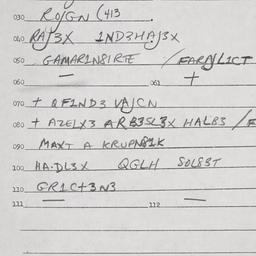 030 RO/GN (413
040 RAJ3X 1ND3HAJ3X
050 GAMAR1N81RTE /FARAJL1CT
060 — 061 +
070 + QF1ND3 VAJCN
080 + AZELX3 ARB3SL3X HAL83 /F
090 MAXT A KRUPN81K
100 HA.DL3X QGLH SOL83T
110 GR1C+3N3
111 — 112 —